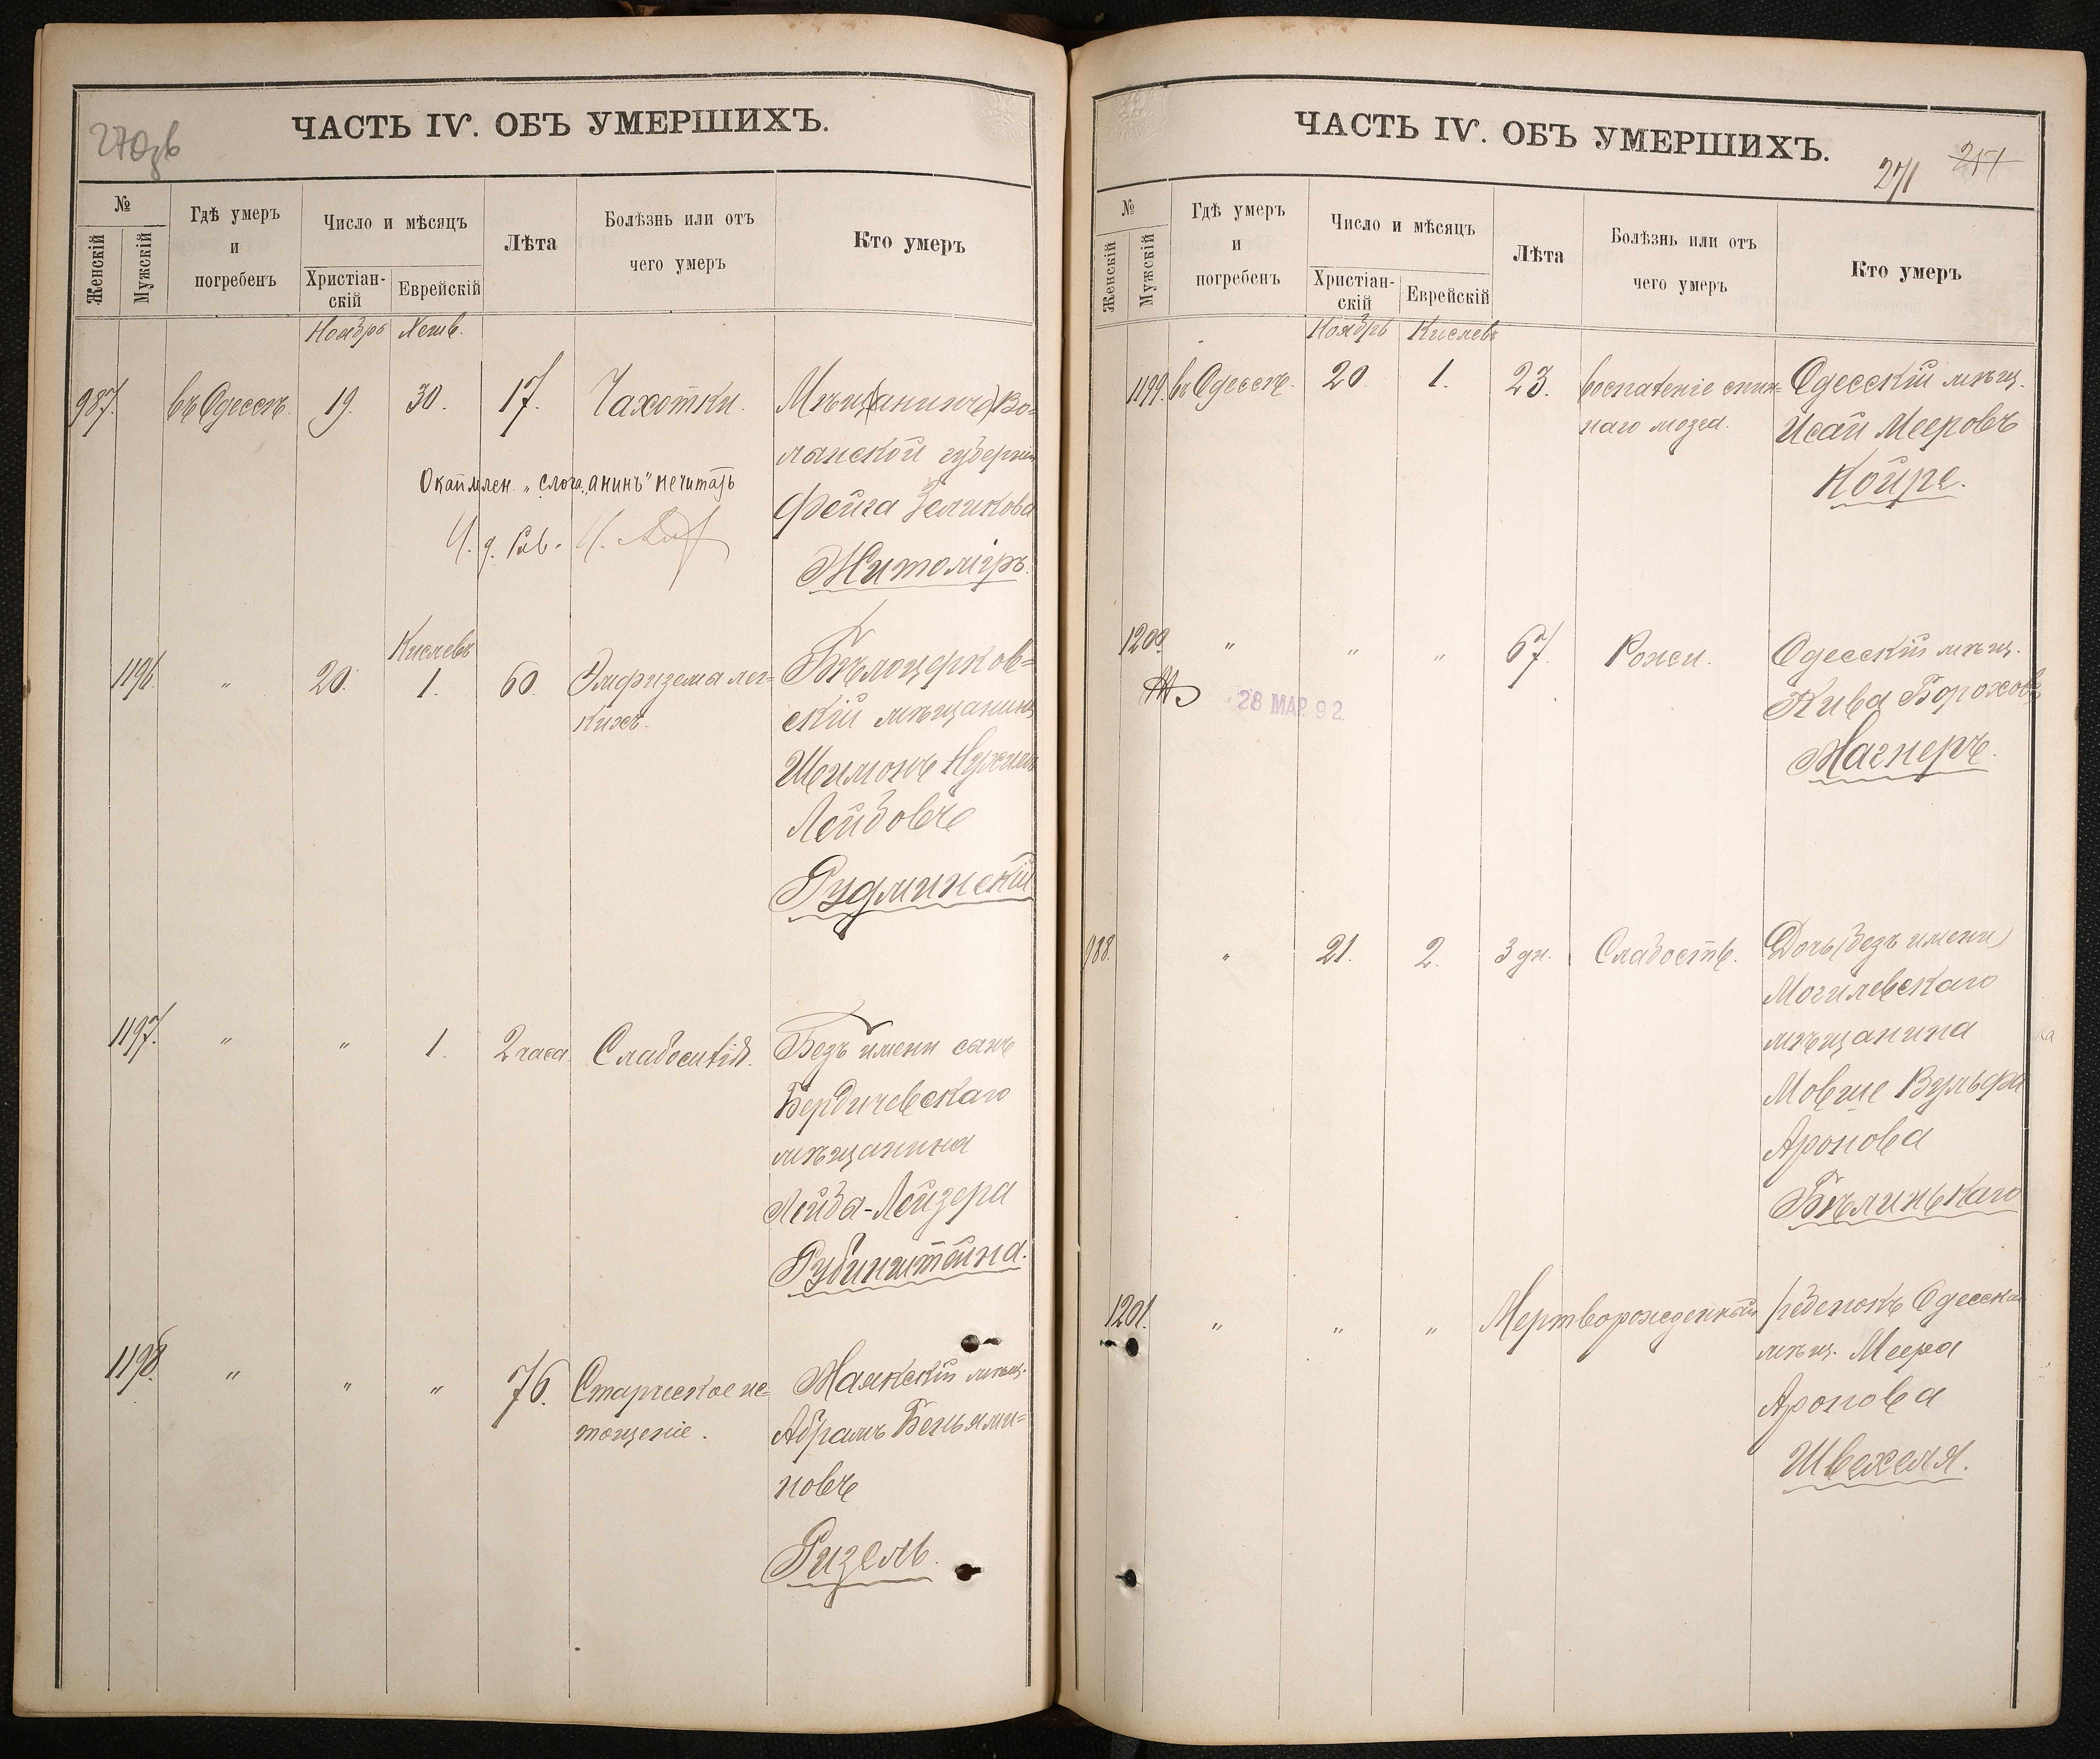 270зв
ЧАСТЬ IV. ОБЪ УМЕРШИХЪ.
№
Женскій
Мужскій
Гдѣ умеръ
и
погребенъ
Число и мѣсяцъ
Христіан-
скій
Еврейскій
Лѣта
Болѣзнь или отъ
чего умеръ
Кто умеръ
Ноябрь Хешв.
987. въ Одессѣ. 19. 30. 17. Чахотки. Мѣщ(анинъ) Во-
лынской губерніи
Окаймлен. „слога „анинъ" нечитать
Фейга Зеликова
И. д. Рав.
Житоміръ.
Кислевъ
1196. " 20. 1. 60. Эмфизема лег- Бѣлоцерков-
кихъ. скій мѣщанинъ
Шимонъ Нухимъ
Лейбовъ
Рудминскій
1197. " " 1. 2 часа Слабости Безъ имени сынъ
Бердичевскаго
мѣщанина
Лейба-Лейзера
Рубинштейна.
1198. " " " 76. Старческое ис- Маякскій мѣщ.
тощеніе. Абрамъ Беньями-
новъ
Ризель.
ЧАСТЬ IV. ОБЪ УМЕРШИХЪ.
271
№
Женскій
Мужскій
Гдѣ умеръ
и
погребенъ
Число и мѣсяцъ
Христіан-
скій
Еврейскій
Лѣта
Болѣзнь или отъ
чего умеръ
Кто умеръ
Ноябрь Кислевъ
1199. въ Одессѣ. 20. 1. 23. воспаленіе спин- Одесскій мѣщ.
наго мозга. Исай Мееровъ
Койре.
1200 " " " 67. Рожи. Одесскій мѣщ.
28 МАР. 92. Кива Бороховъ
Магнеръ.
988. " 21. 2. 3 дн. Слабость. Дочь (безъ имени)
Могилевскаго
мѣщанина
Мовше Вульфа
Аронова
Бѣлинькаго
1201. " " " Мертворожденный ребенокъ Одесскаго
мѣщ. Меера
Аронова
Швехеля.